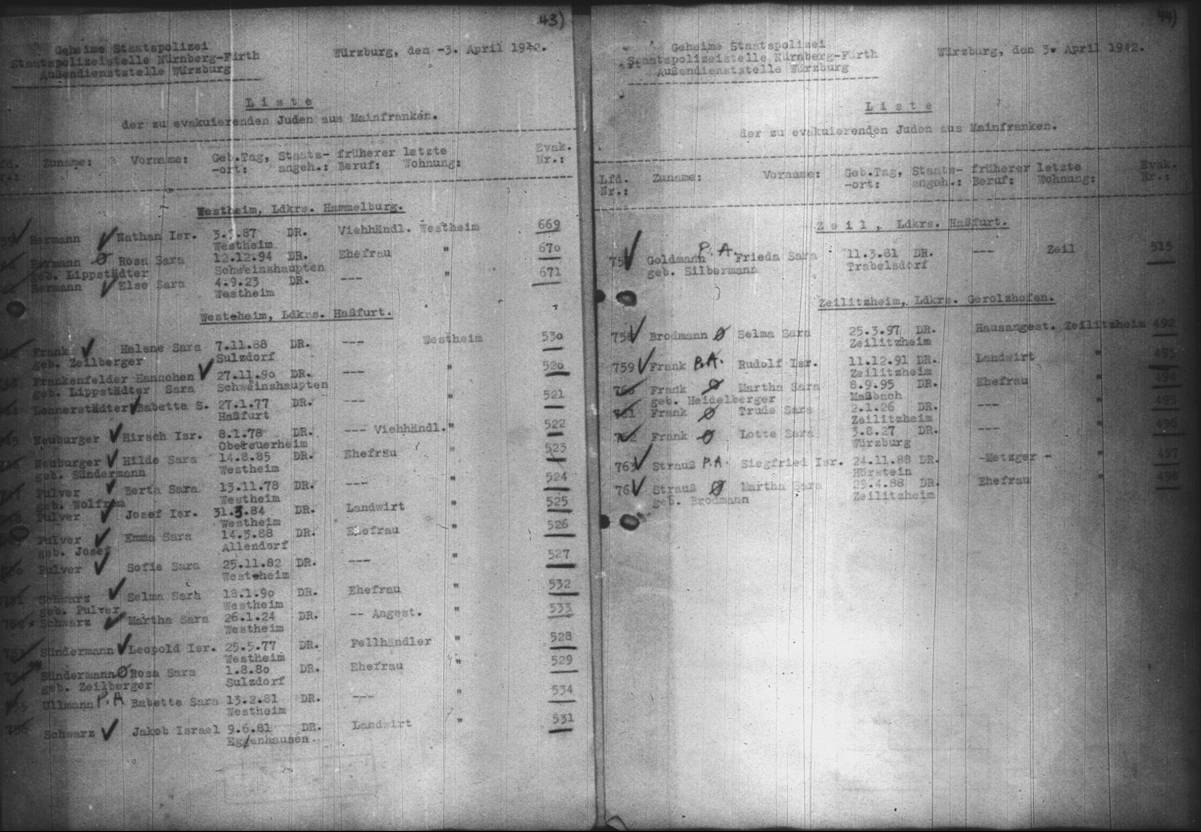 43)
Geheime Staatspolizei
Staatspolizeistelle Nürnberg-Fürth
Außendienststelle Würzburg
Würzburg, den -3. April 1942.
Liste
der zu evakuierenden Juden aus Mainfranken.
Zuname: Vorname: Geb.Tag, Staats- früherer letzte Evak.
-ort: angeh.: Beruf: Wohnung: Nr.:
Westheim, Ldkrs. Hammelburg.
Hermann Nathan Isr. 3.3.87 DR. Viehhändl. Westheim 669
Westheim
Hermann Rosa Sara 12.12.94 DR. Ehefrau " 670
geb. Lippstädter Schweinshaupten
Hermann Else Sara 4.9.23 DR. --- " 671
Westheim
Westheim, Ldkrs. Haßfurt.
Frank Helene Sara 7.11.88 DR. --- Westheim 530
geb. Zeilberger Sulzdorf
Frankenfelder Hannchen 27.11.90 DR. --- " 520
geb. Lippstädter Sara Schweinshaupten
Lennerstädter Babette S. 27.1.77 DR. --- " 521
Haßfurt
Neuburger Hirsch Isr. 8.1.78 DR. --- Viehhändl. " 522
Obereuerheim
Neuburger Hilde Sara 14.8.85 DR. Ehefrau " 523
geb. Sündermann Westheim
Pulver Berta Sara 13.11.78 DR. --- " 524
geb. Wolfrom Westheim
Pulver Josef Isr. 31.3.84 DR. Landwirt " 525
Westheim
Pulver Emma Sara 14.3.88 DR. Ehefrau " 526
geb. Josef Allendorf
Pulver Sofie Sara 25.11.82 DR. --- " 527
Westheim
Schwarz Selma Sara 18.1.90 DR. Ehefrau " 532
geb. Pulver Westheim
Schwarz Martha Sara 26.1.24 DR. -- Angest. " 533
Westheim
Sündermann Leopold Isr. 25.5.77 DR. Fellhändler " 528
Westheim
Sündermann Rosa Sara 1.8.80 DR. Ehefrau " 529
geb. Zeilberger Sulzdorf
Ullmann P.A Babette Sara 13.2.81 DR. --- " 534
Westheim
Schwarz Jakob Israel 9.6.81 DR. Landwirt " 531
Eggenhausen
44)
Geheime Staatspolizei
Staatspolizeistelle Nürnberg-Fürth
Außendienststelle Würzburg
Würzburg, den 3. April 1942.
Liste
der zu evakuierenden Juden aus Mainfranken.
Lfd. Zuname: Vorname: Geb.Tag, Staats- früherer letzte Evak.
Nr.: -ort: angeh.: Beruf: Wohnung: Nr.:
Zeil, Ldkrs. Haßfurt.
Goldmann P.A Frieda Sara 11.3.81 DR. --- Zeil 515
geb. Silbermann Trabelsdorf
Zeilitzheim, Ldkrs. Gerolzhofen.
758 Brodmann Selma Sara 25.3.97 DR. Hausangest. Zeilitzheim 492
Zeilitzheim
759 Frank P.A. Rudolf Isr. 11.12.91 DR. Landwirt "
Zeilitzheim
760 Frank Martha Sara 8.9.95 DR. Ehefrau "
geb. Heidelberger Maßbach
761 Frank Trude Sara 2.1.26 DR. --- " 495
Zeilitzheim
762 Frank Lotte Sara 3.8.27 DR. --- " 496
Würzburg
763 Strauß P.A. Siegfried Isr. 24.11.88 DR. -Metzger - " 497
Hörstein
Strauß Martha Sara 29.4.88 DR. Ehefrau " 498
geb. Brodmann Zeilitzheim